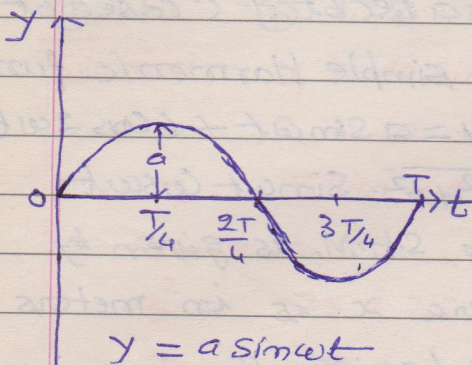 y
a
0
T/4
2T/4
3T/4
T
t
y = a sinωt